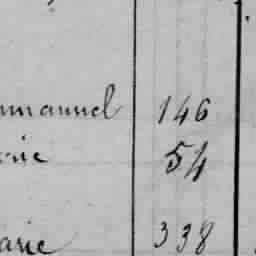 mmanuel 146
orie 54
arie 338